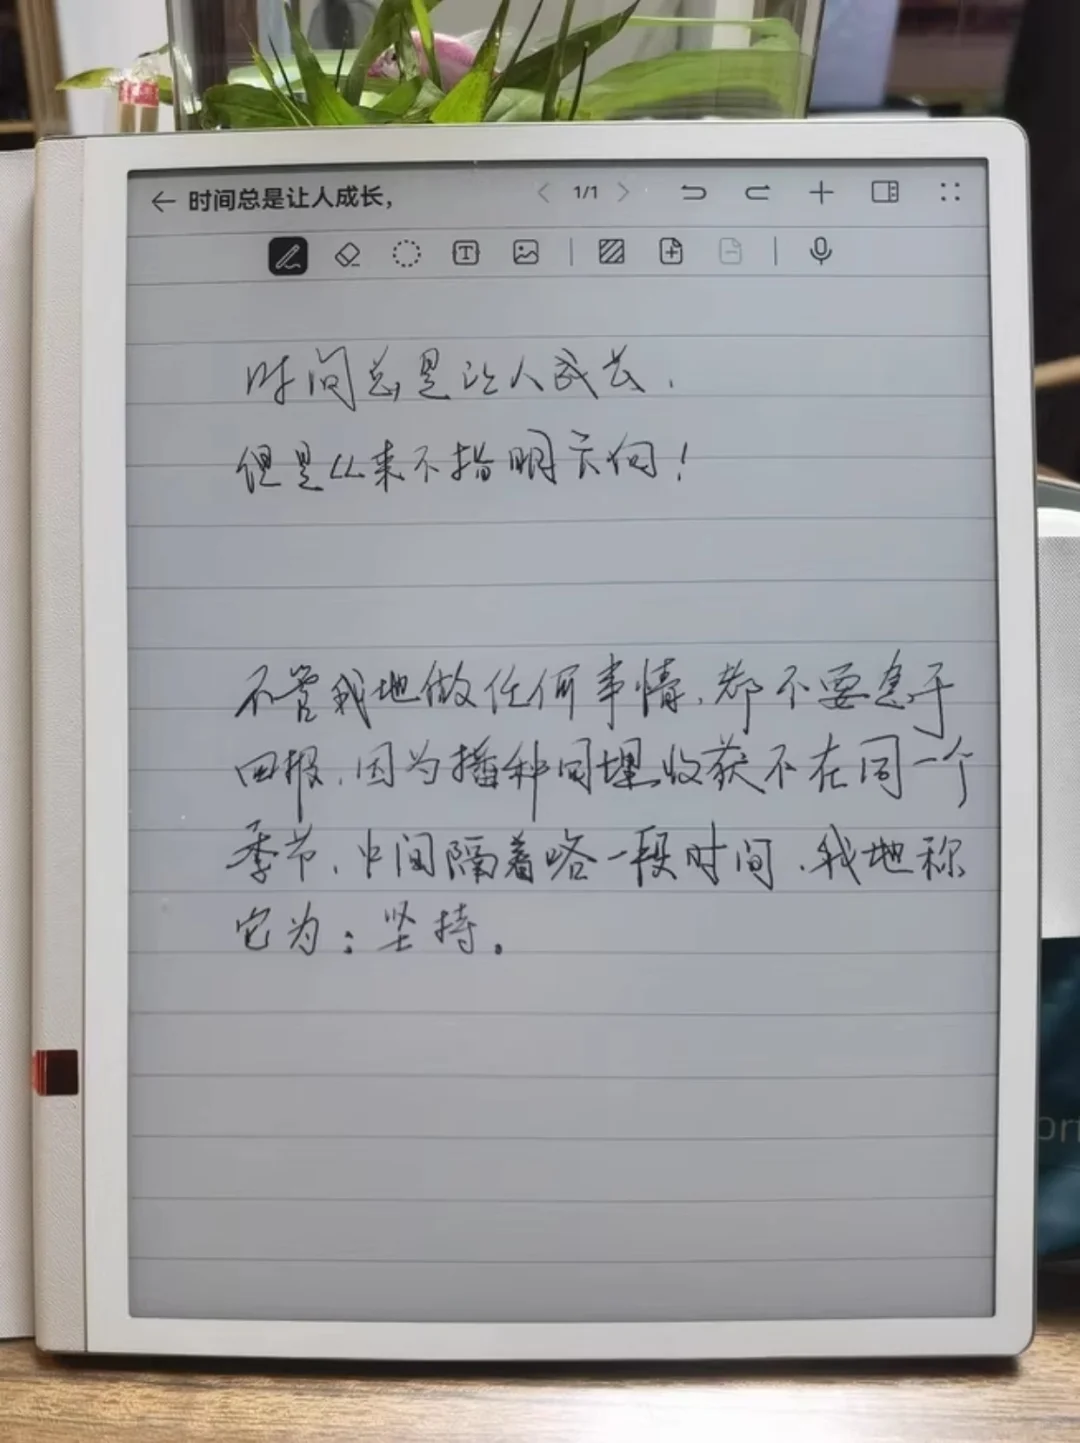 时间总是让人成长，
1/1
时间总是让人成长，
但是从来不指明方向！
不管我地做任何事情，都不要急于
回报，因为播种同埋收获不在同一个
季节，中间隔着咯一段时间，我地称
它为：坚持。